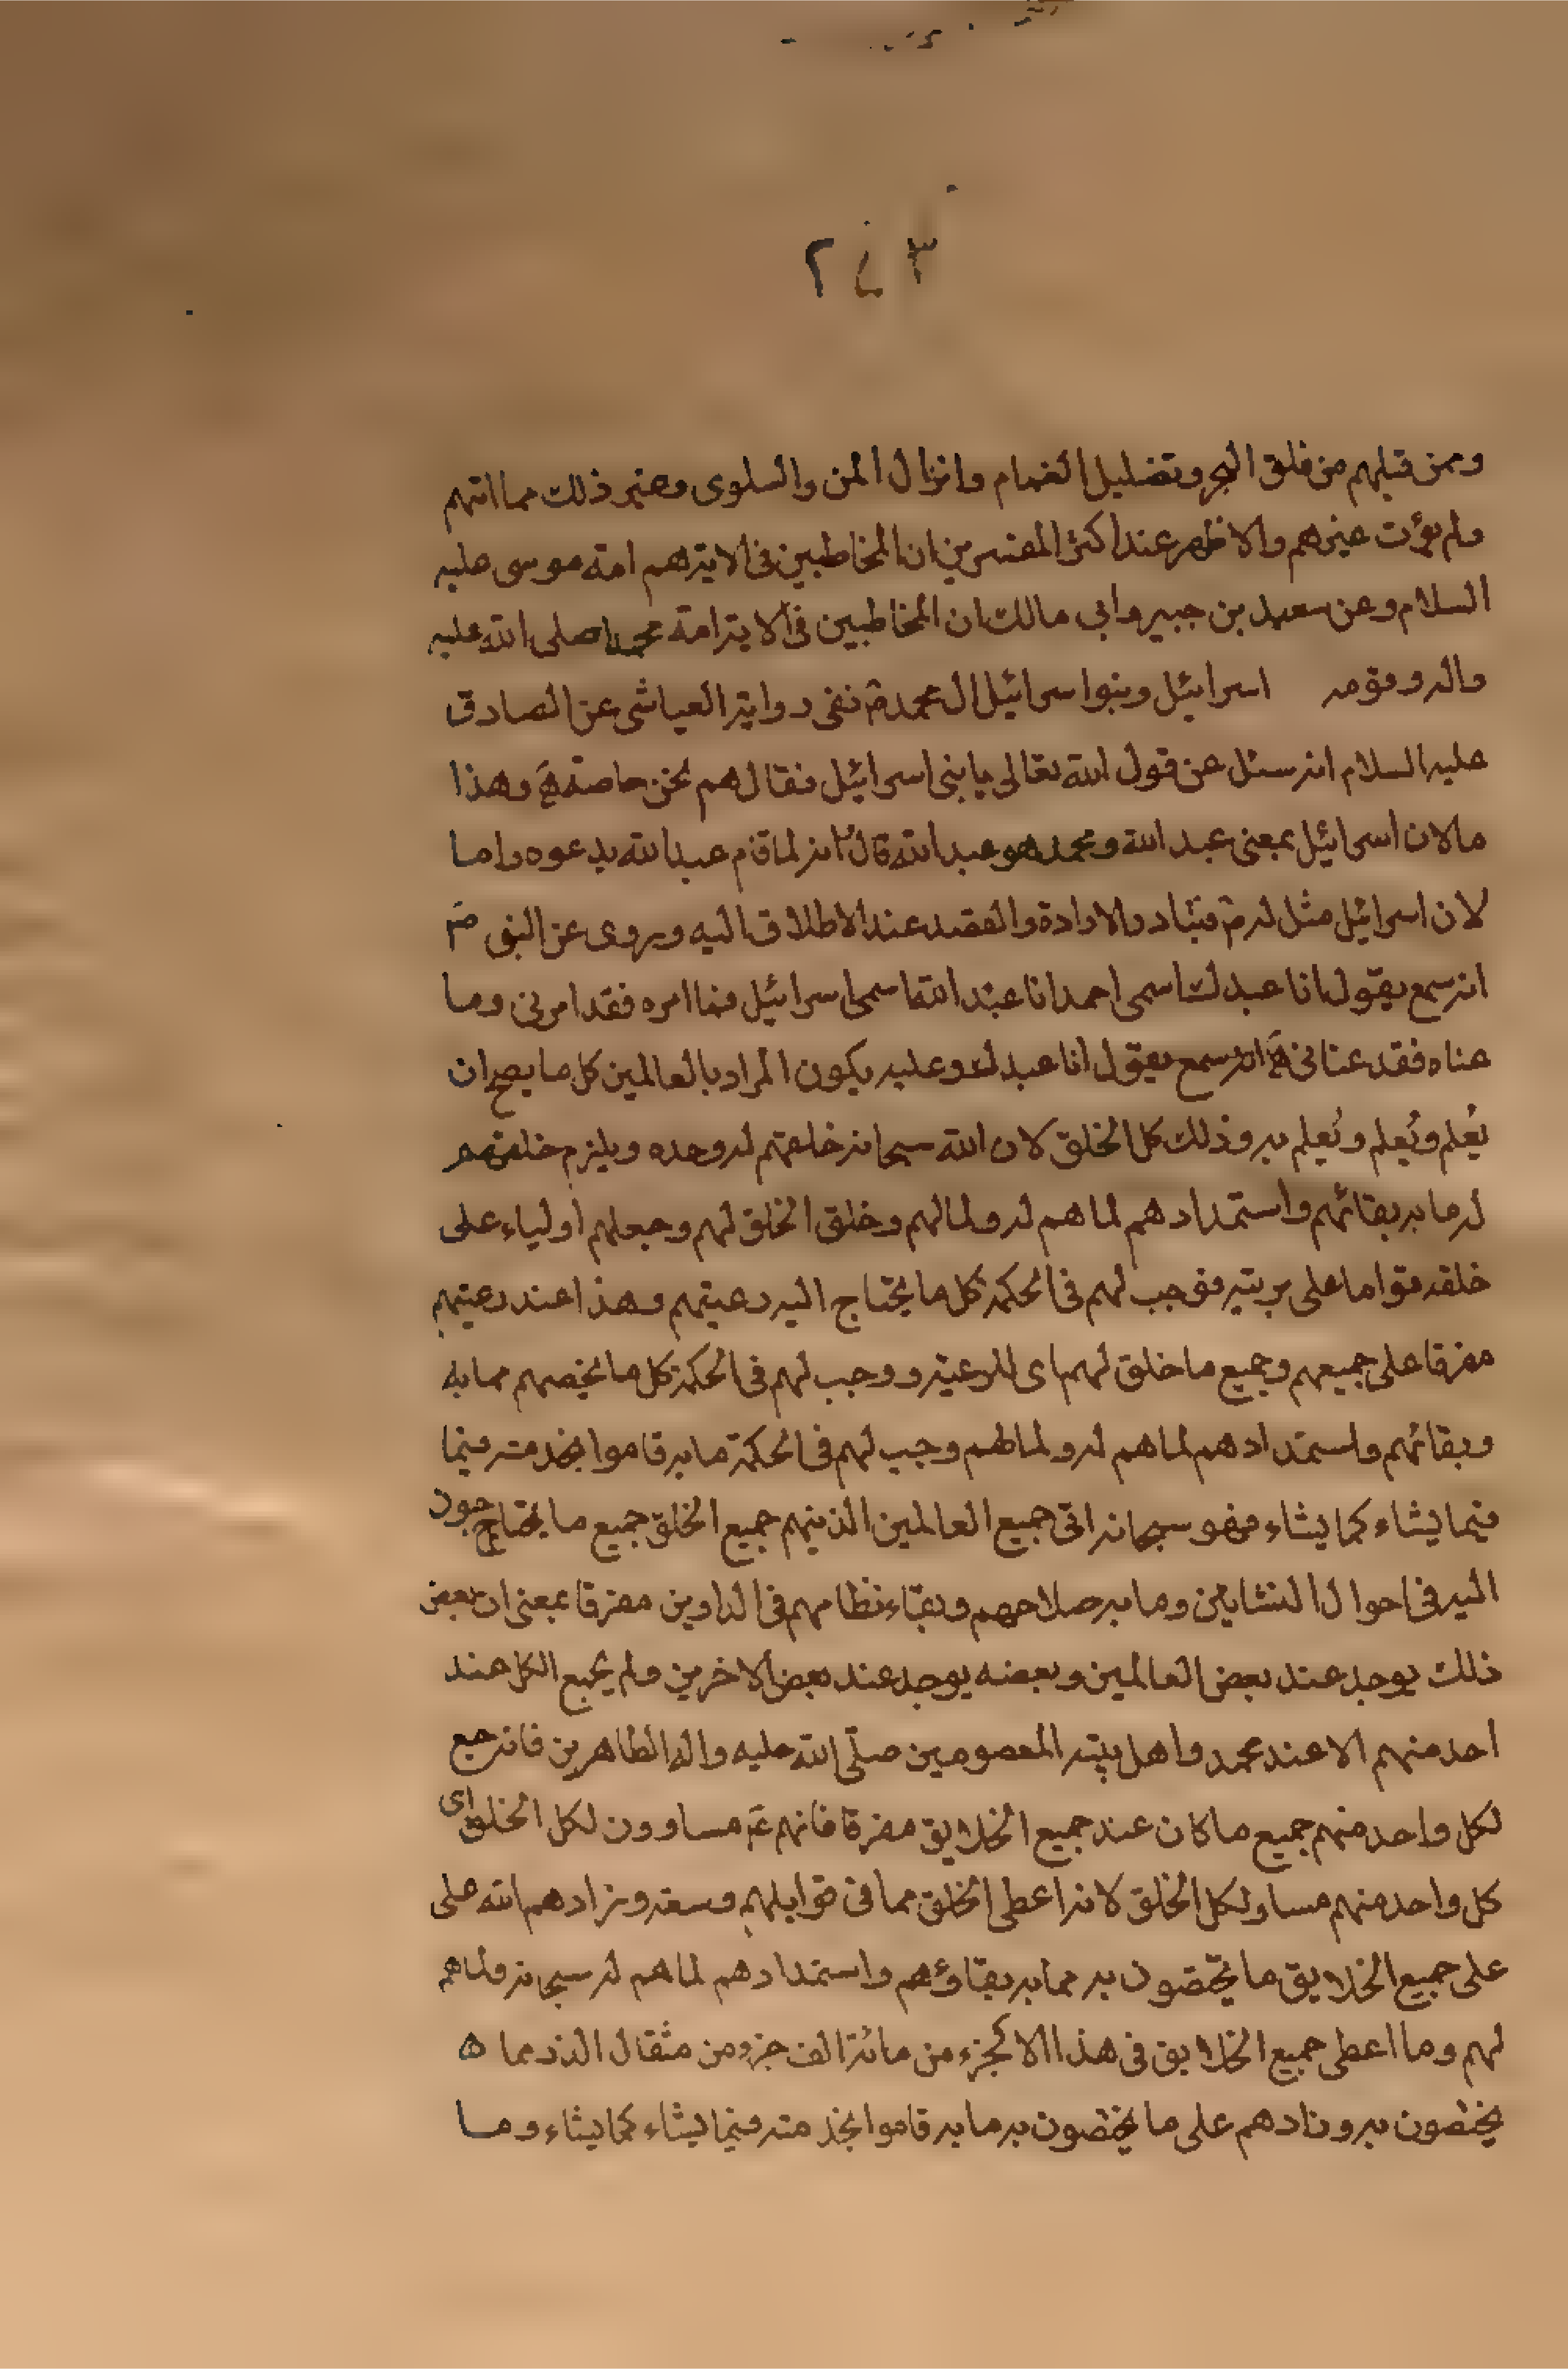 ٢٧٣
وممن قبلهم من فلق البحر وتضليل الغمام وانزال المن والسلوى وغير ذلك مما اتهم
ولم يؤت غيرهم والاظهر عند اكثر المفسرين ان المخاطبين في الاية هم امة موسى عليه
السلام وعن سعيد بن جبير وابي مالك ان المخاطبين في الاية امة محمد صلى الله عليه
واله وقومه اسرائيل وبنوا اسرائيل ال محمد ص ففي رواية العياشي عن الصادق
عليه السلام انه سئل عن قول الله تعالى يا بني اسرائيل فقال هم نحن خاصة وهذا
مالان اسرائيل بمعنى عبد الله ومحمد هو عبد الله قال انه لما قام عبد الله يدعوه واما
لان اسرائيل مثل له ص فتبادر الارادة والقصد عند الاطلاق اليه وروى عن النبي ص
انه سمع يقول انا عبدك اسمى احمد انا عبد الله اسمى اسرائيل فما امره فقد امرني وما
عناه فقد عناني انه سمع يقول انا عبدك وعليه يكون المراد بالعالمين كل ما يصح ان
يُعلم ويُعلم ويُعلم به وذلك كل الخلق لان الله سبحانه خلقهم له وحده ويلزم خلقهم
له ما به بقائهم واستمدادهم لما هم له ولما لهم وخلق الخلق لهم وجعلهم اولياء على
خلقه قواما على بريته فوجب لهم في الحكمة كل ما يحتاج اليه رعيتهم وهذا عند رعيتهم
مفرقا على جميعهم وجميع ما خلق لهم اى للرعية ووجب لهم في الحكمة كل ما يخصهم مما به
وبقائهم واستمدادهم لما هم له ولما لهم وجب لهم في الحكمة ما به قاموا بخدمته فيما
فيما يشاء كما يشاء فهو سبحانه اتى جميع العالمين الذينهم جميع الخلق جميع ما يحتاجون
اليه في احوال النشايتين وما به صلاحهم وبقاء نظامهم في الداوين مفرقا بمعنى ان بعض
ذلك يوجد عند بعض العالمين وبعضه يوجد عند بعض الاخرين ولم يجمع الكل عند
احد منهم الا عند محمد واهل بيته المعصومين صلّى الله عليه واله الطاهرين فانه جمع
لكل واحد منهم جميع ما كان عند جميع الخلايق مفرقا فانهم عَ مساوون لكل الخلق اى
كل واحد منهم مساو لكل الخلق لانه اعطى الخلق مما في قوابلهم وسعته وزادهم الله على
على جميع الخلايق ما يختصون به مما به بقاؤهم واستمدادهم لما هم له سبحانه ولما هم
لهم وما اعطى جميع الخلايق في هذا الا كجزء من مائة الف جزء من مثقال الذر مما ه
يختصون به وزادهم على ما يختصون به ما به قاموا بخدمته فيما يشاء كما يشاء وما